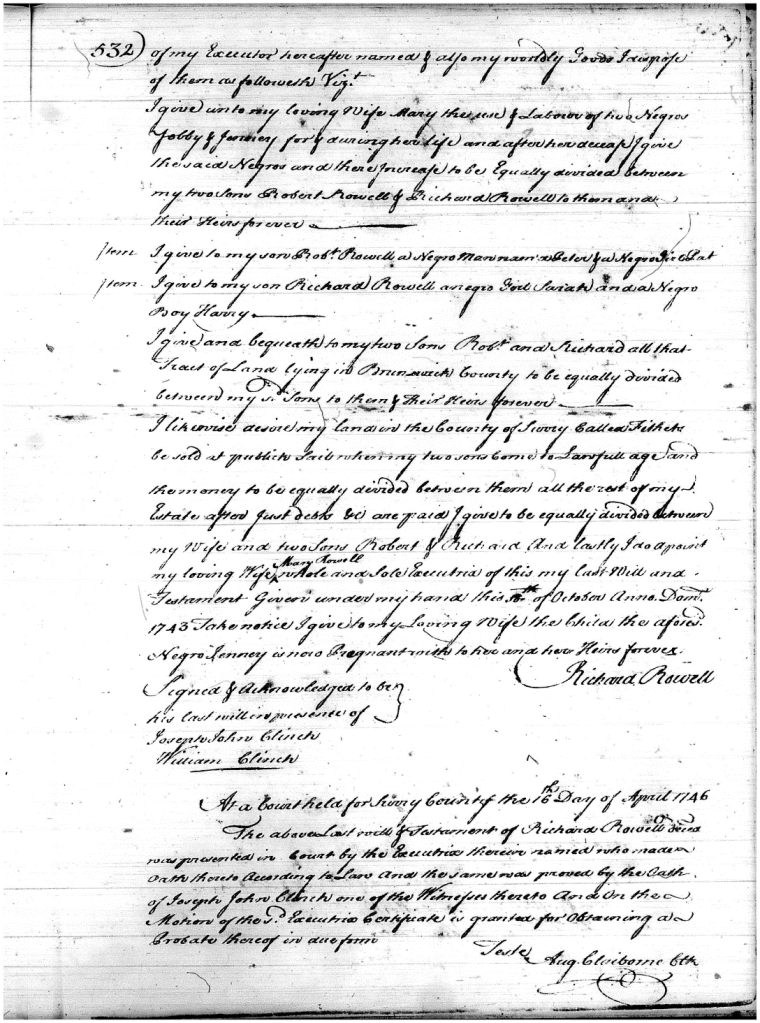 532) of my Executor hereafter named & also my worldly Goods I dispose
of them as followeth Vizt
I give unto my loving Wife Mary the use & Labour of two Negros
Tobby & Jenney for & during her life and after her decease I give
the said Negros and there Increase to be Equally divided between
my two Sons Robert Rowell & Richard Rowell to them and
their Heirs forever
Item I give to my son Robt. Rowell a Negro Man nam'd Peter & a Negro Pat
Item I give to my son Richard Rowell a negro Girl Sarah and a Negro
Boy Harry
I give and bequeath to my two Sons Robt. and Richard all that
Tract of Land lying in Brunswick County to be equally divided
between my sd. Sons to them & Their Heirs forever
I likewise desire my land in the County of Surry Called
be sold at publick Sail when my two sons Come to Lawfull age and
the money to be equally divided between them all the rest of my
Estate after Just debts &c are paid I give to be equally divided between
my Wife and two Sons Robert & Richard And lastly I do apoint
my loving Wife Mary Rowell whole and Sole Executrix of this my last Will and
Testament Given under my hand this of October Anno. Dom.
1743 Take notice I give to my Loving Wife the Child the aforesd.
Negro Jenney is now Pregnant with to her and here Heirs forever.
Signed & Acknowledged to be Richard Rowell
his last will in presence of
Joseph John Clinch
William Clinch
At a Court held for Surry County the 16th Day of April 1746
The above Last will & Testament of Richard Rowell decd
was presented in Court by the Executrix therein named who made
Oath thereto According to Law And the same was proved by the Oath
of Joseph John Clinch one of the Witnesses thereto And On the
Motion of the sd. Executrix Certificate is granted for Obtaining a
Probate thereof in due form
Teste Aug. Claiborne Clk